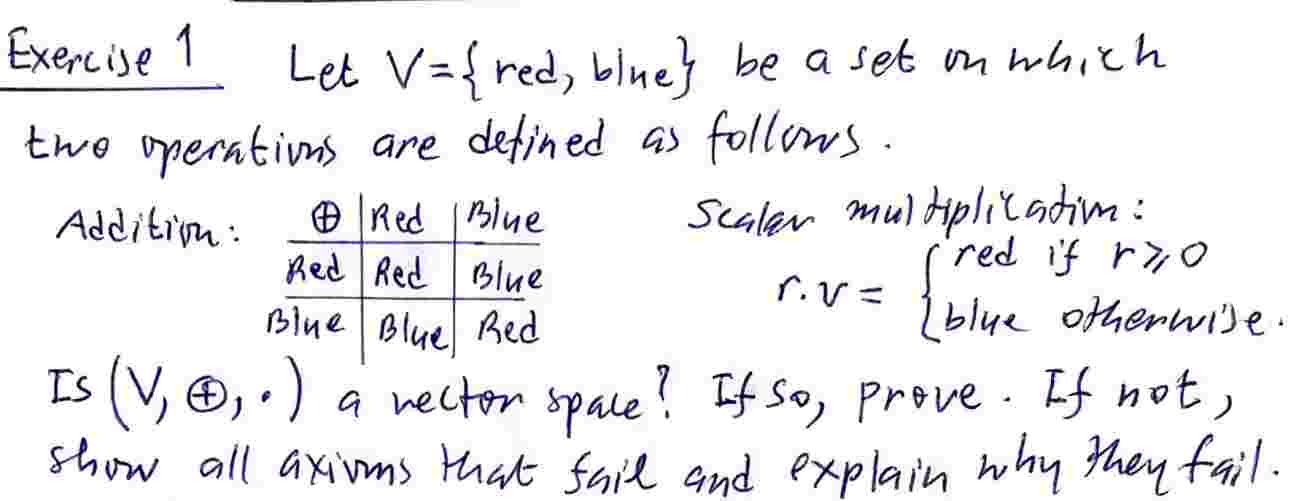 Exercise 1 Let V={red, blue} be a set on which
two operations are defined as follows.
Addition: ⊕ | Red | Blue Scalar multiplication:
Red | Red | Blue r.v = { red if r⩾0
Blue | Blue | Red blue otherwise.
Is (V, ⊕, ·) a vector space? If so, prove. If not,
show all axioms that fail and explain why they fail.